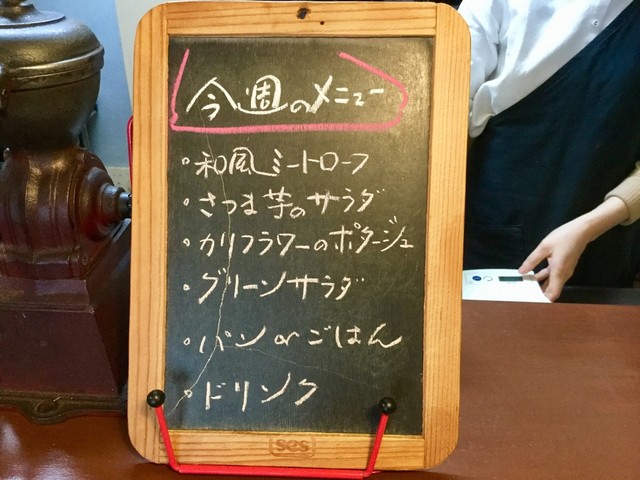 今週のメニュー
・和風ミートローフ
・さつま芋のサラダ
・カリフラワーのポタージュ
・グリーンサラダ
・パン or ごはん
・ドリンク
SCS